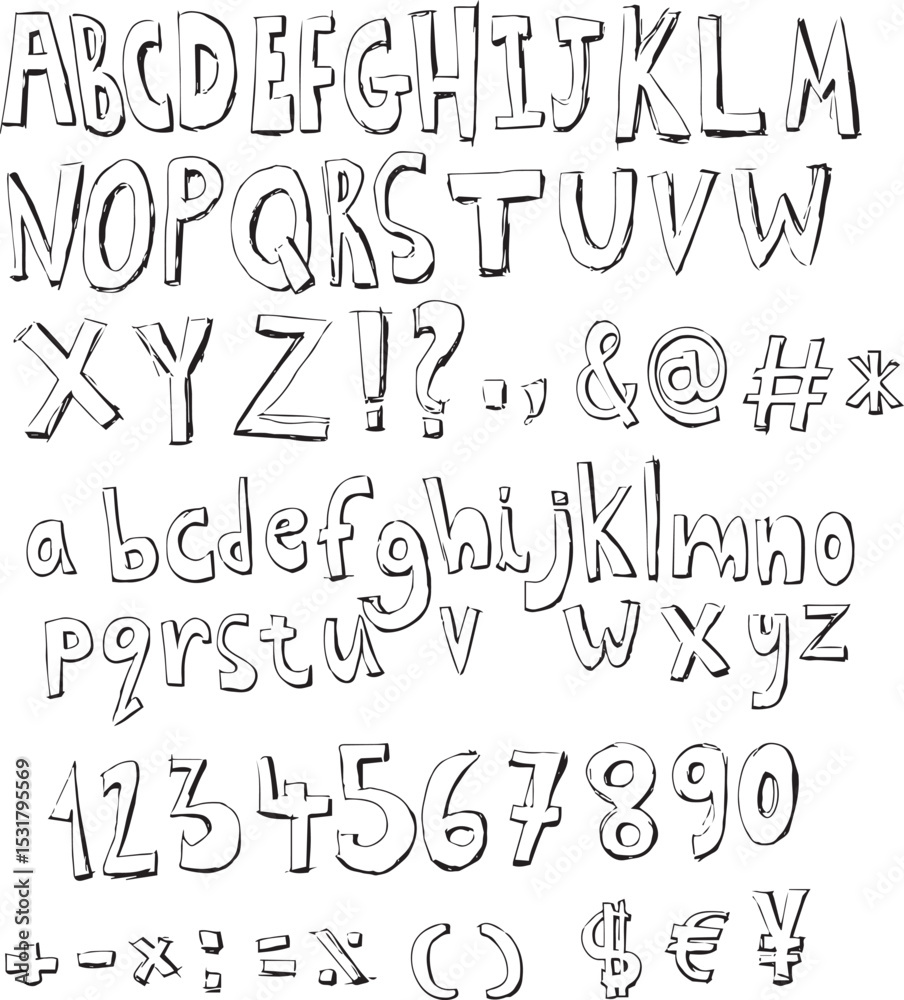 ABCDEFGHIJKLM
NOPQRSTUVW
XYZ!?.,&@#*
abcdefghijklmno
pqrstuvwxyz
1234567890
+-×:=%()$€¥
Adobe Stock | #1531795569